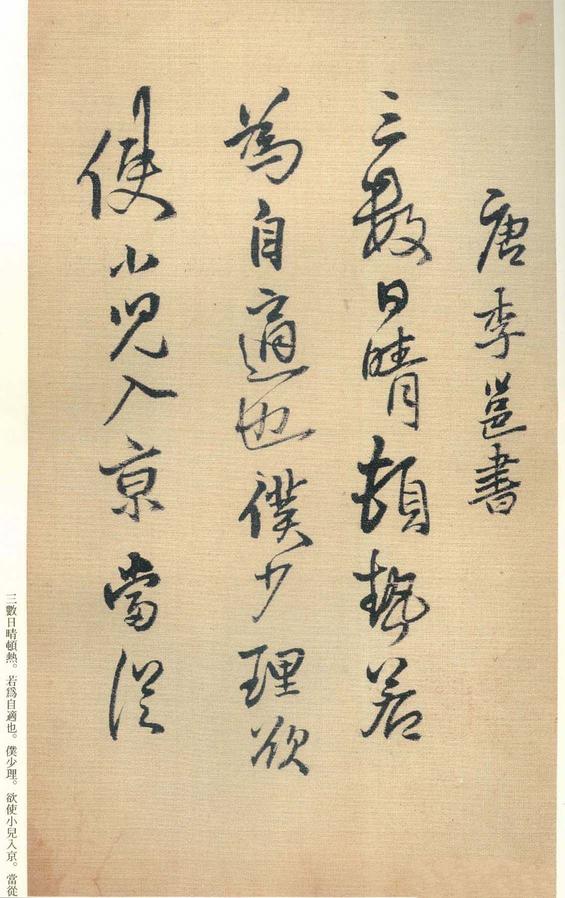 唐李邕書
三數日晴頓熱若
為自適也僕少理欲
使小兒入京當從
三數日晴頓熱。若爲自適也。僕少理。欲使小兒入京。當從